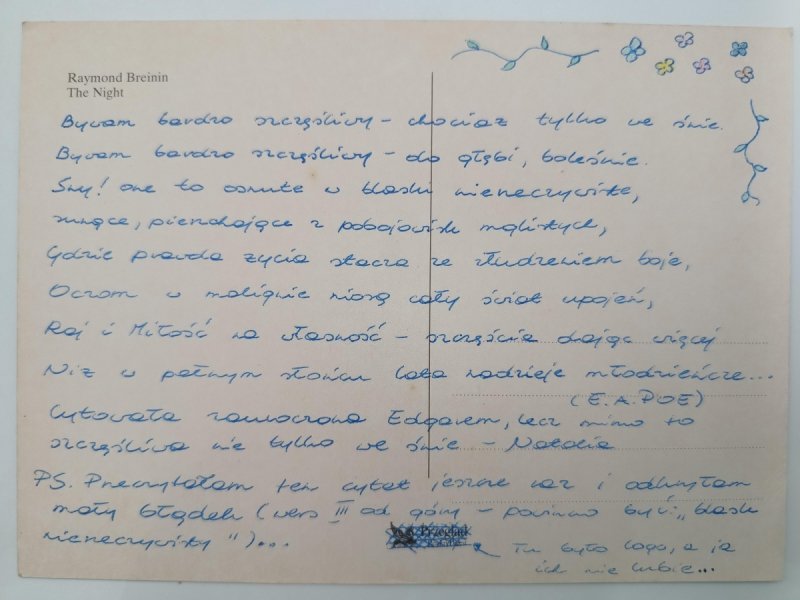 Raymond Breinin
The Night
Bywam bardzo szczęśliwy – chociaż tylko we śnie.
Bywam bardzo szczęśliwy – do głębi, boleśnie.
Sny! one to osnute w blasku nierzeczywiste,
mknące, pierzchające z pobojowisk mglistych,
Gdzie prawda życia stacza ze złudzeniem boje,
Oczom w malignie niosą cały świat upojeń,
Raj i Miłość na własność – szczęścia dając więcej
Niż w pełnym słońcu lata nadzieje młodzieńcze...
(E.A. POE)
Cytowała zamroczona Edgarem, lecz mimo to
szczęśliwa nie tylko we śnie – Natalia
PS. Przeczytałam ten cytat jeszcze raz i odkryłam
mały błądek (wers III od góry – powinno być: „blask
nierzeczywisty")...
Przegląd
Tu było logo, a ja
ich nie lubię...